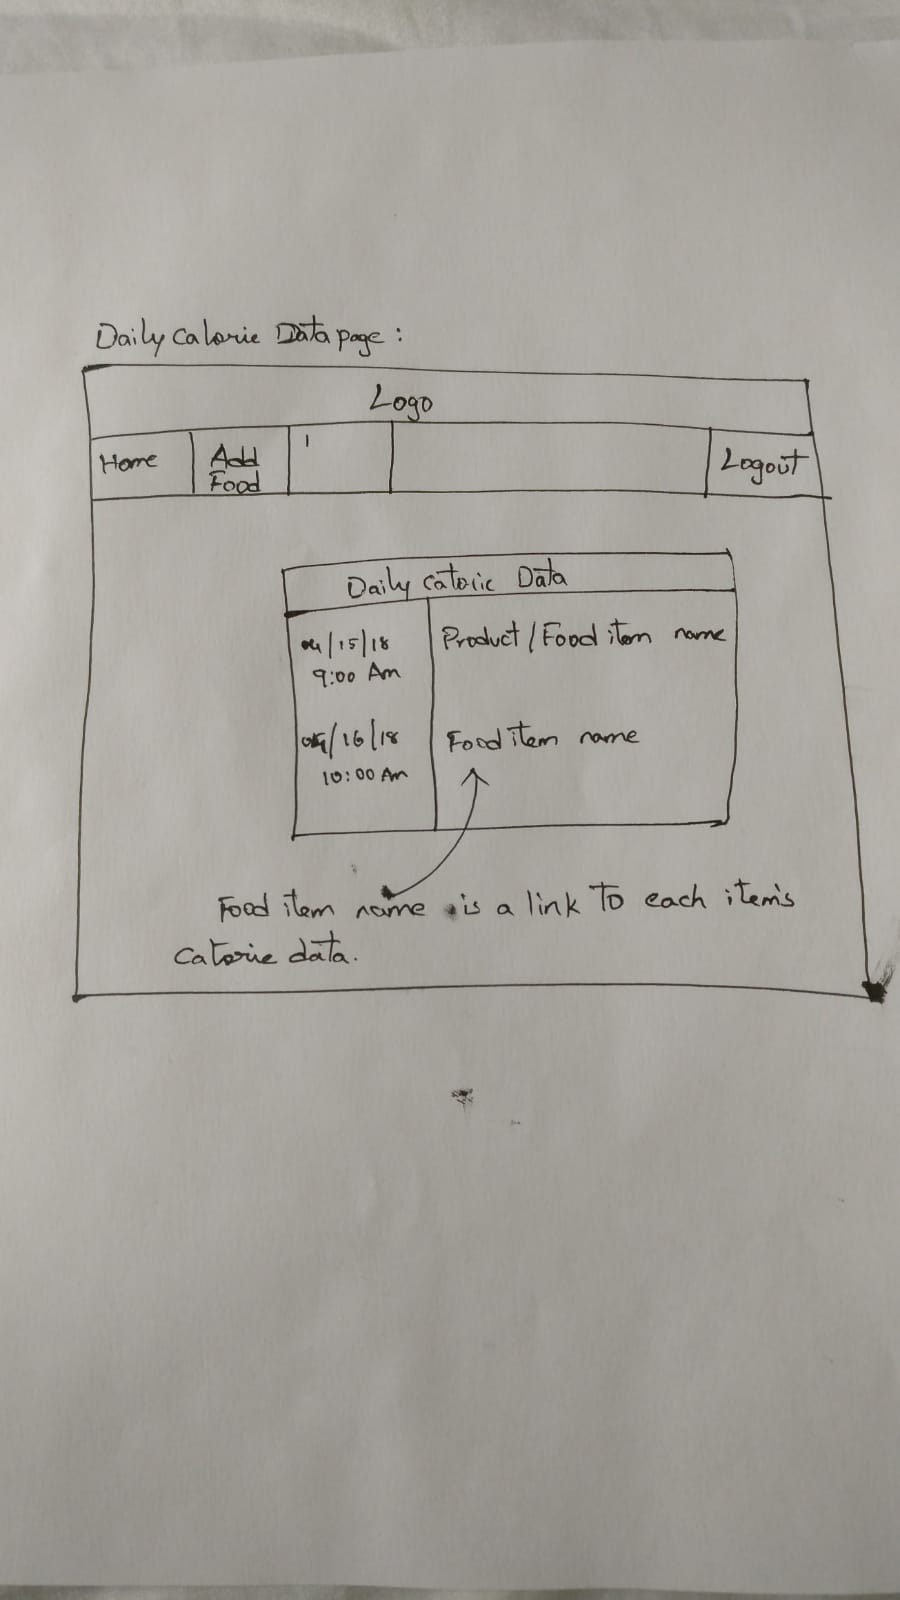 Daily Calorie Data page :
Logo
Home
Add
Food
Logout
Daily Caloric Data
04/15/18
9:00 Am
Product/Food item name
04/16/18
10:00 Am
Food item name
Food item name is a link to each item's
Calorie data.